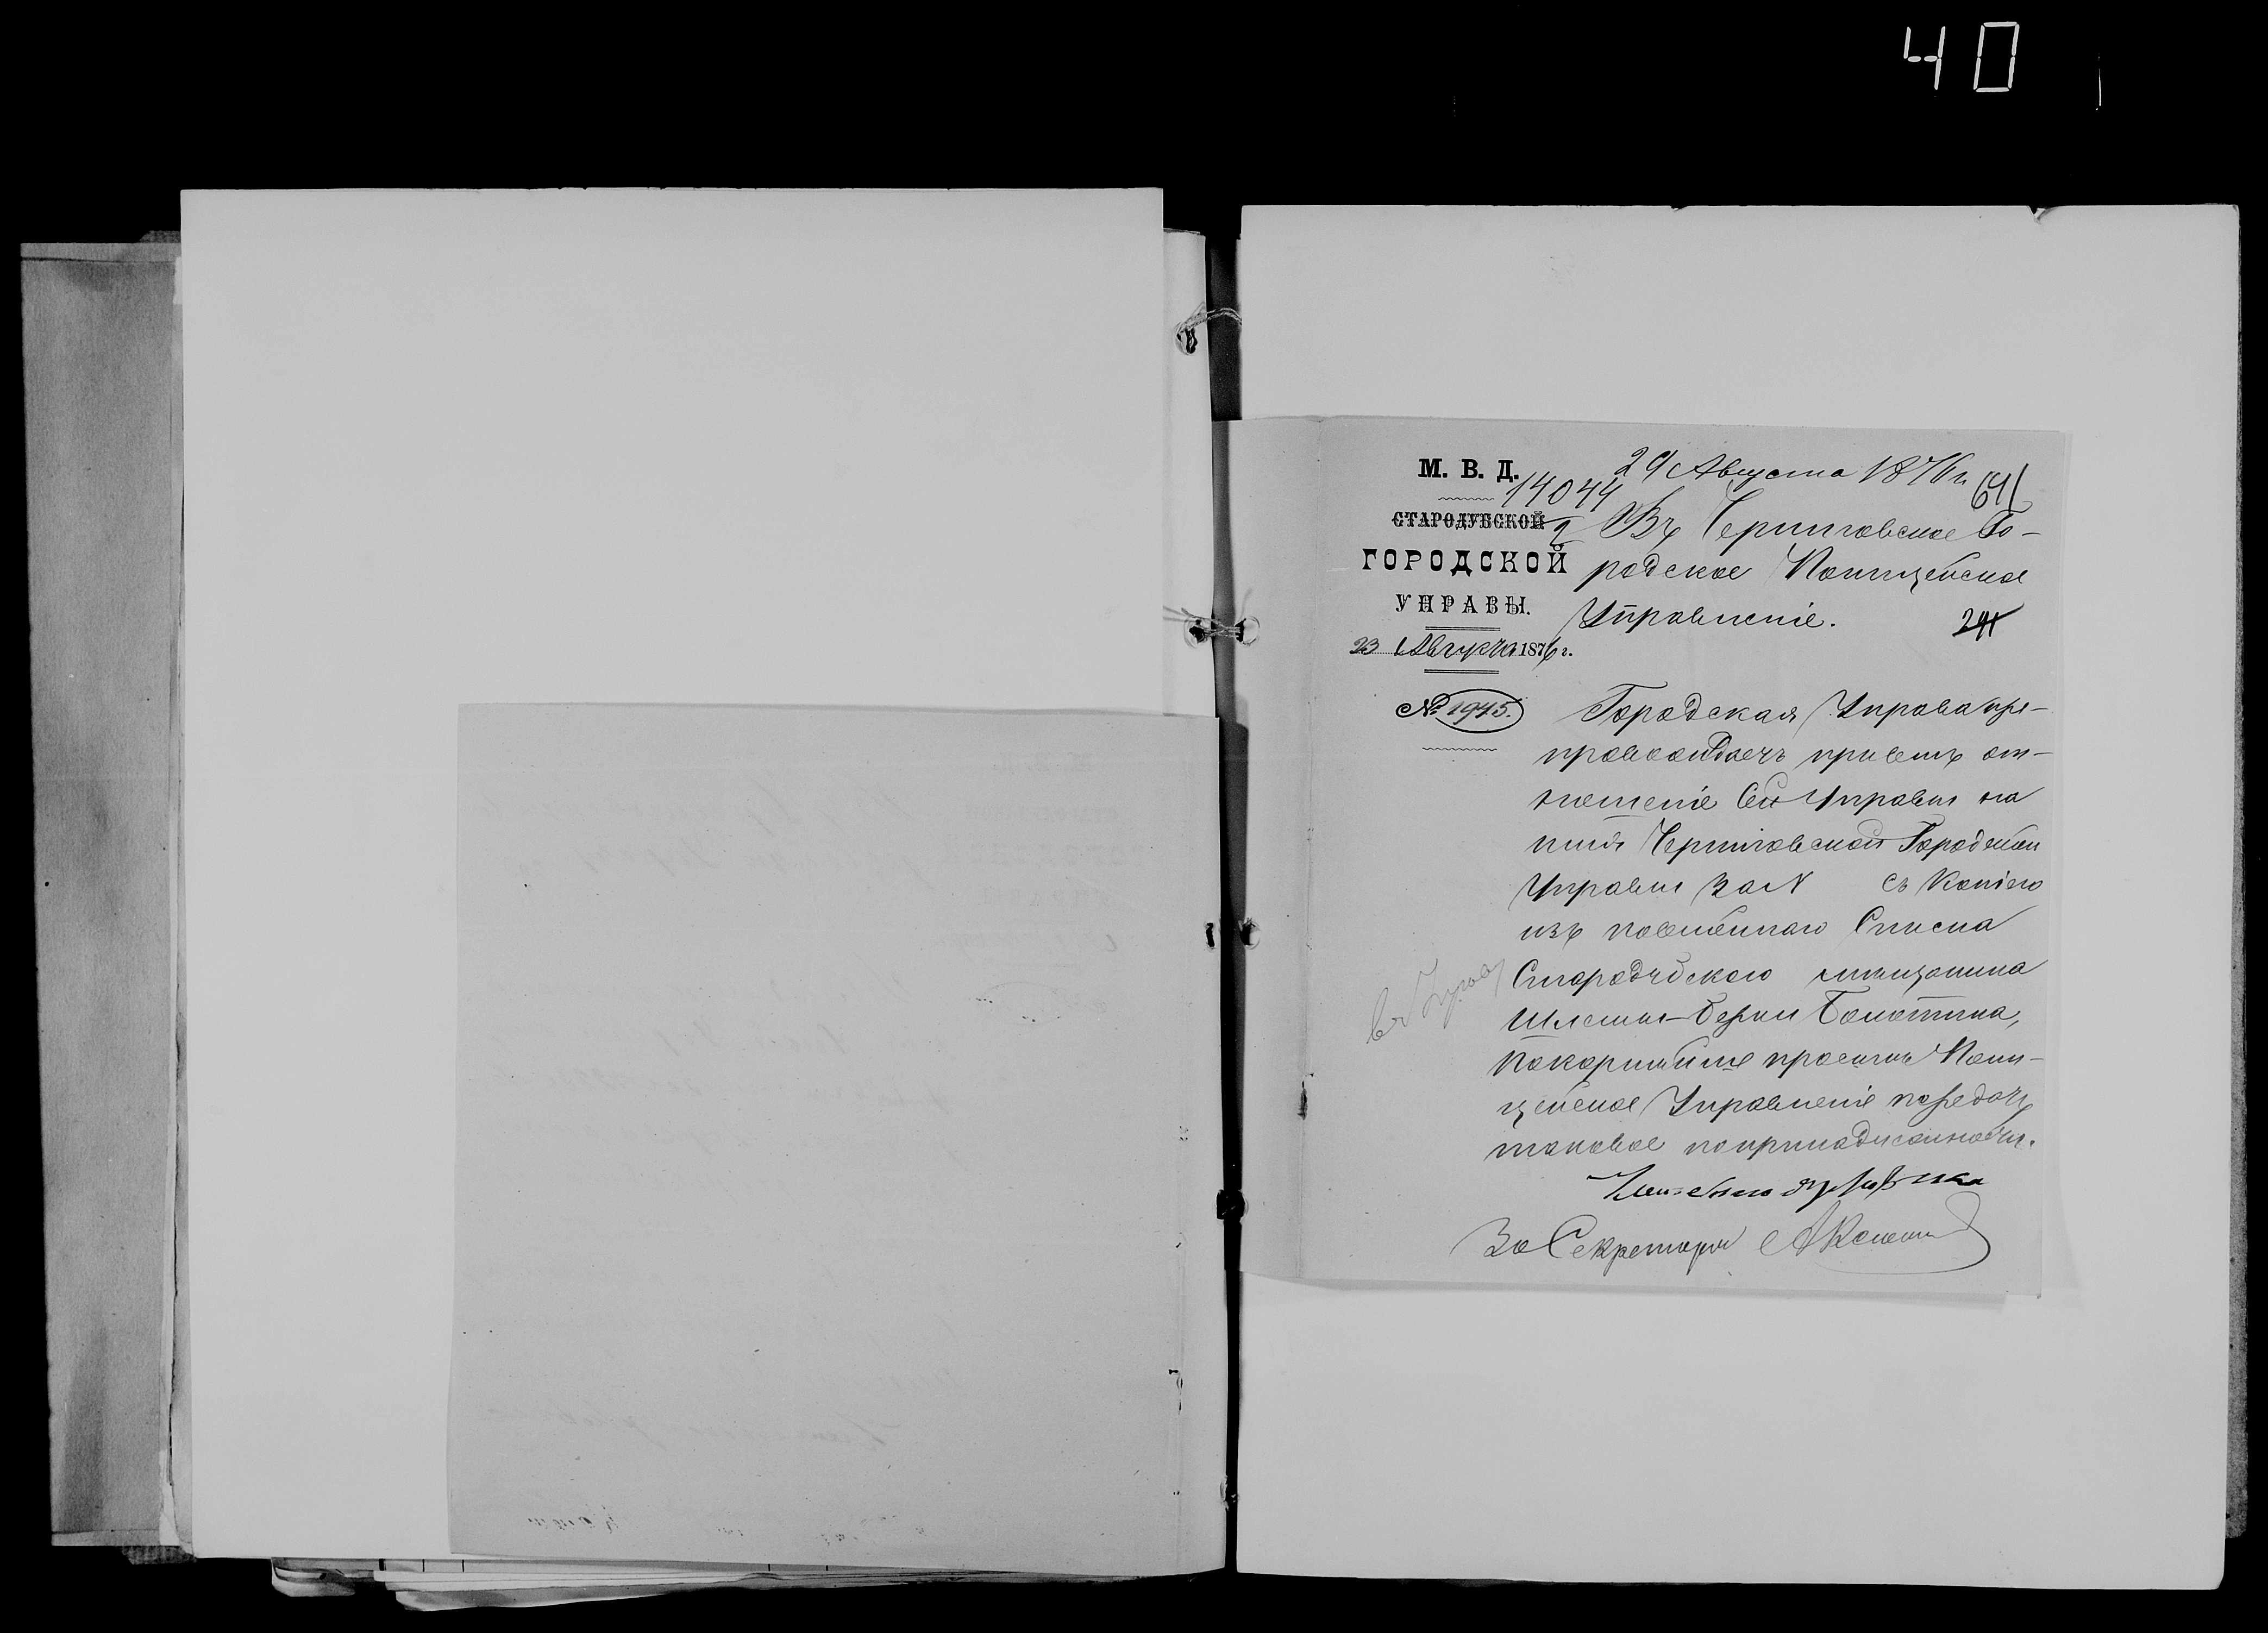 40
М. В. Д.
14044
2
СТАРОДУБСКОЙ
ГОРОДСКОЙ
УПРАВЫ.
23 Августа 1876 г.
№ 1945.
29 Августа 1876 г.
641
Въ Черниговское Го-
родское Полицейское
Управленіе.
241
Городская Управа пре-
провождаетъ при семъ от-
ношеніе Сей Управы на
имя Черниговской Городской
Управы за № съ копіею
изъ посемейнаго Списка
Стародубского мещанина
Шлемы-Берки Болотина,
Покорнейше проситъ Поли-
цейское Управленіе передать
таковое по принадлежности.
За Секретаря